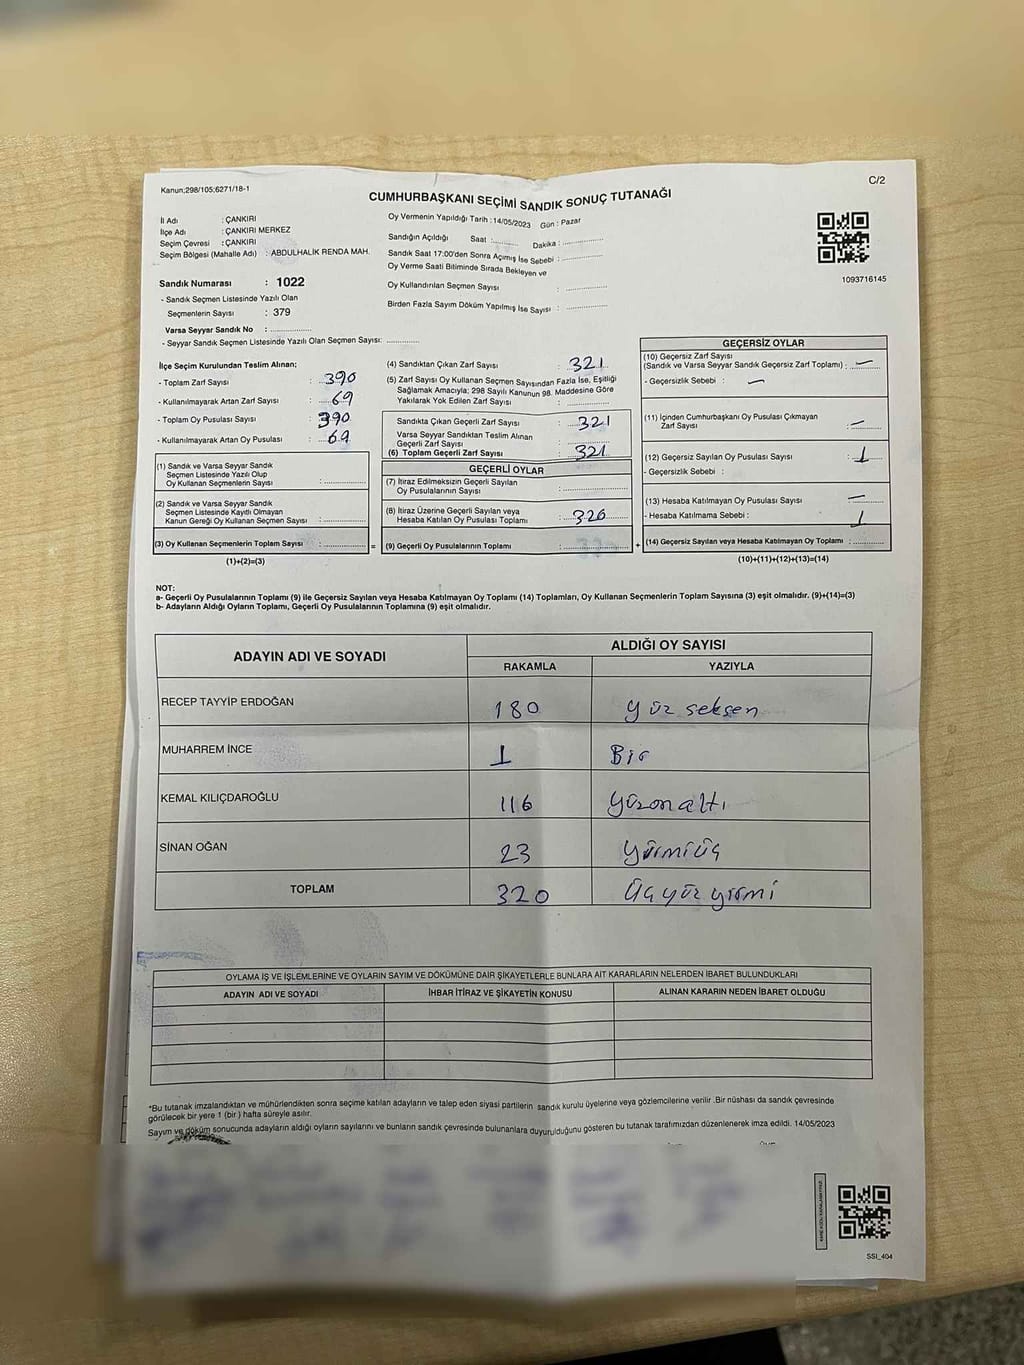 Kanun;298/105;6271/18-1
C/2
CUMHURBAŞKANI SEÇİMİ SANDIK SONUÇ TUTANAĞI
İl Adı : ÇANKIRI
İlçe Adı : ÇANKIRI MERKEZ
Seçim Çevresi : ÇANKIRI
Seçim Bölgesi (Mahalle Adı) : ABDULHALİK RENDA MAH.
Sandık Numarası : 1022
- Sandık Seçmen Listesinde Yazılı Olan
Seçmenlerin Sayısı : 379
Varsa Seyyar Sandık No : ..............
- Seyyar Sandık Seçmen Listesinde Yazılı Olan Seçmen Sayısı: ............
Oy Vermenin Yapıldığı Tarih : 14/05/2023 Gün : Pazar
Sandığın Açıldığı Saat :......... Dakika :..............
Sandık Saat 17:00'den Sonra Açımış İse Sebebi : ..............
Oy Verme Saati Bitiminde Sırada Bekleyen ve
Oy Kullandırılan Seçmen Sayısı : ..............
Birden Fazla Sayım Döküm Yapılmış İse Sayısı : ..............
1093716145
İlçe Seçim Kurulundan Teslim Alınan;
- Toplam Zarf Sayısı : 390
- Kullanılmayarak Artan Zarf Sayısı : 69
- Toplam Oy Pusulası Sayısı : 390
- Kullanılmayarak Artan Oy Pusulası : 69
(1) Sandık ve Varsa Seyyar Sandık
Seçmen Listesinde Yazılı Olup
Oy Kullanan Seçmenlerin Sayısı : ..............
(2) Sandık ve Varsa Seyyar Sandık
Seçmen Listesinde Kayıtlı Olmayan
Kanun Gereği Oy Kullanan Seçmen Sayısı : ..............
(3) Oy Kullanan Seçmenlerin Toplam Sayısı : .............. =
(1)+(2)=(3)
(4) Sandıktan Çıkan Zarf Sayısı : 321
(5) Zarf Sayısı Oy Kullanan Seçmen Sayısından Fazla İse, Eşitliği
Sağlamak Amacıyla; 298 Sayılı Kanunun 98. Maddesine Göre
Yakılarak Yok Edilen Zarf Sayısı : ..............
Sandıkta Çıkan Geçerli Zarf Sayısı : 321
Varsa Seyyar Sandıktan Teslim Alınan
Geçerli Zarf Sayısı : ..............
(6) Toplam Geçerli Zarf Sayısı : 321
GEÇERLİ OYLAR
(7) İtiraz Edilmeksizin Geçerli Sayılan
Oy Pusulalarının Sayısı : ..............
(8) İtiraz Üzerine Geçerli Sayılan veya
Hesaba Katılan Oy Pusulası Toplamı : 320
(9) Geçerli Oy Pusulalarının Toplamı : .............. +
GEÇERSİZ OYLAR
(10) Geçersiz Zarf Sayısı
(Sandık ve Varsa Seyyar Sandık Geçersiz Zarf Toplamı) : —
- Geçersizlik Sebebi : —
(11) İçinden Cumhurbaşkanı Oy Pusulası Çıkmayan
Zarf Sayısı : —
(12) Geçersiz Sayılan Oy Pusulası Sayısı : 1
- Geçersizlik Sebebi :
(13) Hesaba Katılmayan Oy Pusulası Sayısı : —
- Hesaba Katılmama Sebebi : 1
(14) Geçersiz Sayılan veya Hesaba Katılmayan Oy Toplamı : ..........
(10)+(11)+(12)+(13)=(14)
NOT:
a- Geçerli Oy Pusulalarının Toplamı (9) ile Geçersiz Sayılan veya Hesaba Katılmayan Oy Toplamı (14) Toplamları, Oy Kullanan Seçmenlerin Toplam Sayısına (3) eşit olmalıdır. (9)+(14)=(3)
b- Adayların Aldığı Oyların Toplamı, Geçerli Oy Pusulalarının Toplamına (9) eşit olmalıdır.
ADAYIN ADI VE SOYADI ALDIĞI OY SAYISI
RAKAMLA YAZIYLA
RECEP TAYYİP ERDOĞAN 180 yüz seksen
MUHARREM İNCE 1 Bir
KEMAL KILIÇDAROĞLU 116 yüzonaltı
SİNAN OĞAN 23 yirmiüç
TOPLAM 320 Üçyüz yirmi
OYLAMA İŞ VE İŞLEMLERİNE VE OYLARIN SAYIM VE DÖKÜMÜNE DAİR ŞİKAYETLERLE BUNLARA AİT KARARLARIN NELERDEN İBARET BULUNDUKLARI
ADAYIN ADI VE SOYADI İHBAR İTİRAZ VE ŞİKAYETİN KONUSU ALINAN KARARIN NEDEN İBARET OLDUĞU
*Bu tutanak imzalandıktan ve mühürlendikten sonra seçime katılan adayların ve talep eden siyasi partilerin sandık kurulu üyelerine veya gözlemcilerine verilir .Bir nüshası da sandık çevresinde
görülecek bir yere 1 (bir ) hafta süreyle asılır.
Sayım ve döküm sonucunda adayların aldığı oyların sayılarını ve bunların sandık çevresinde bulunanlara duyurulduğunu gösteren bu tutanak tarafımızdan düzenlenerek imza edildi. 14/05/2023
SSI_404